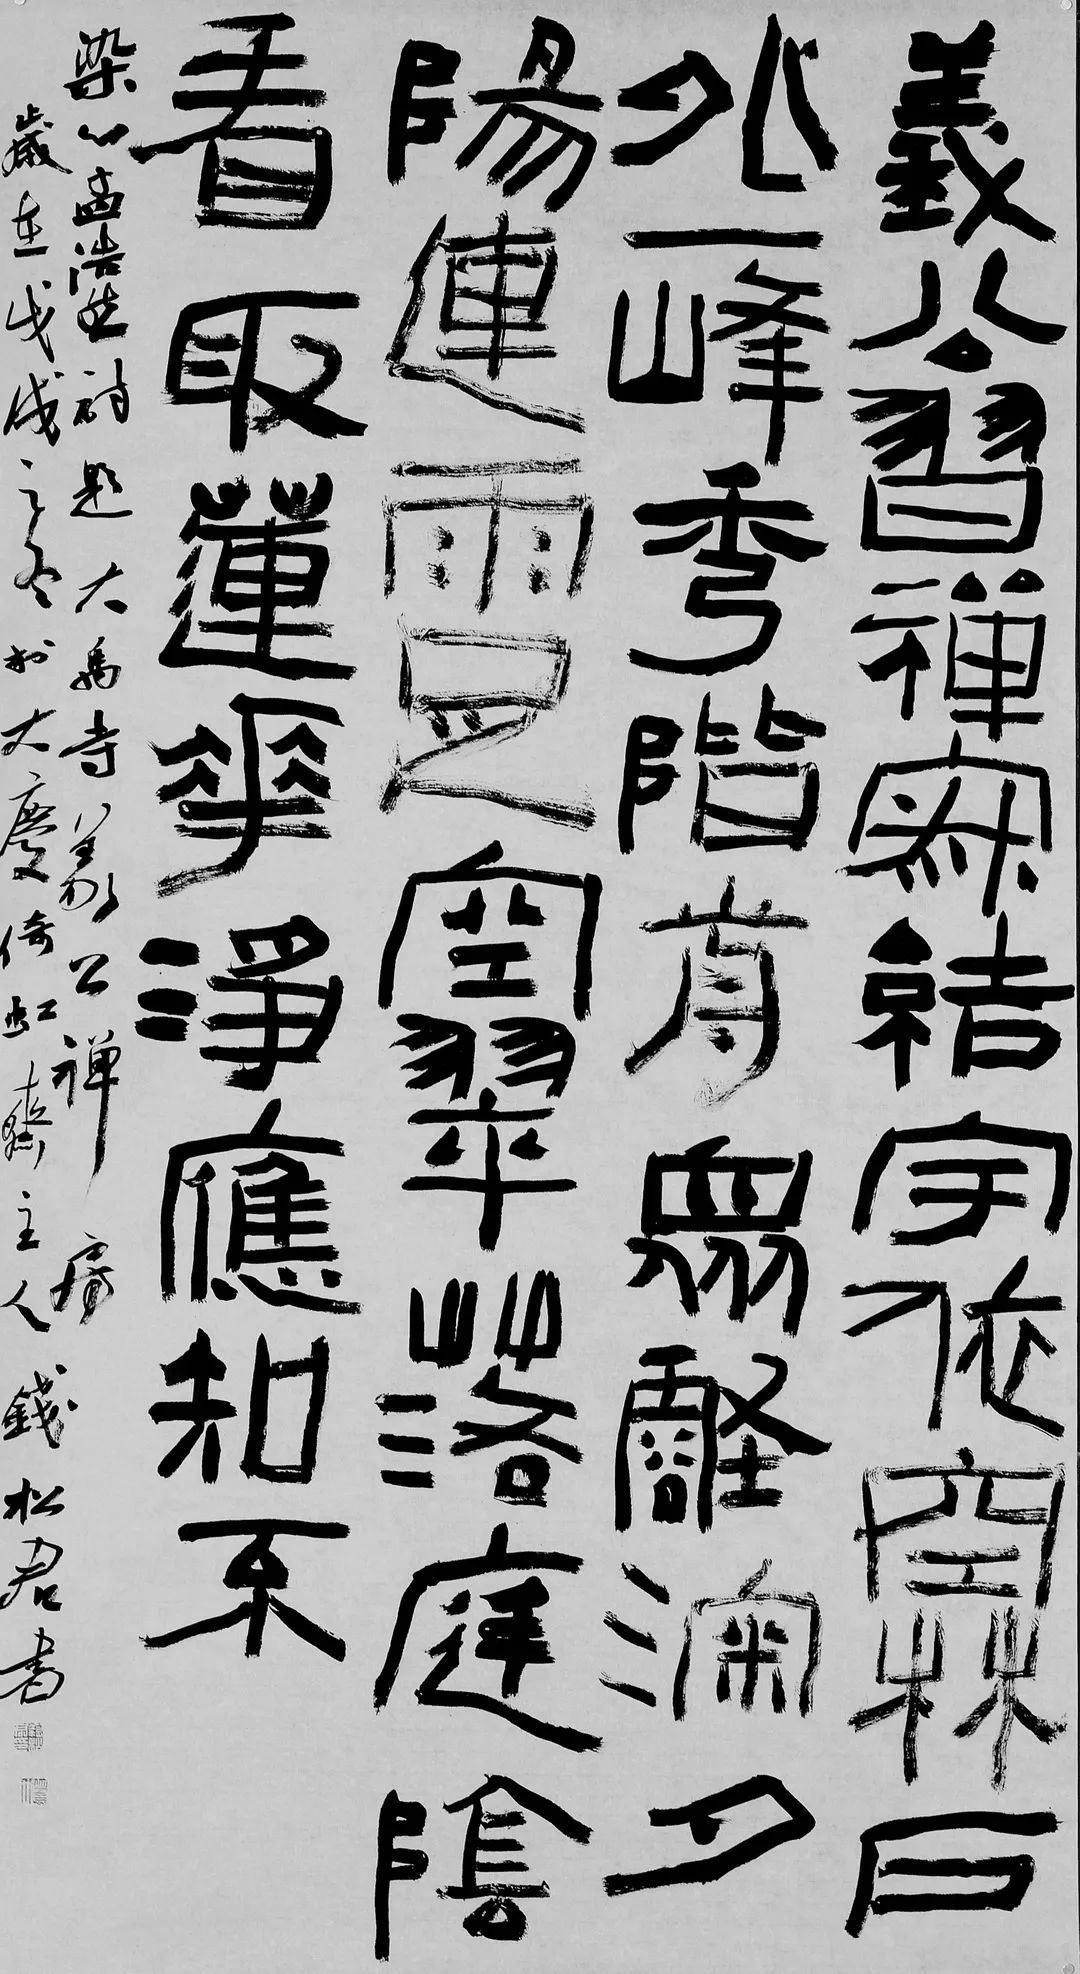 義公習禪寂結宇依空林戶
外一峰秀階前眾壑深夕
陽連雨足空翠落庭陰
看取蓮華淨應知不
染心孟浩然詩題大禹寺義公禅房
歲在戊戌之冬於大慶倚虹齋主人錢松君書